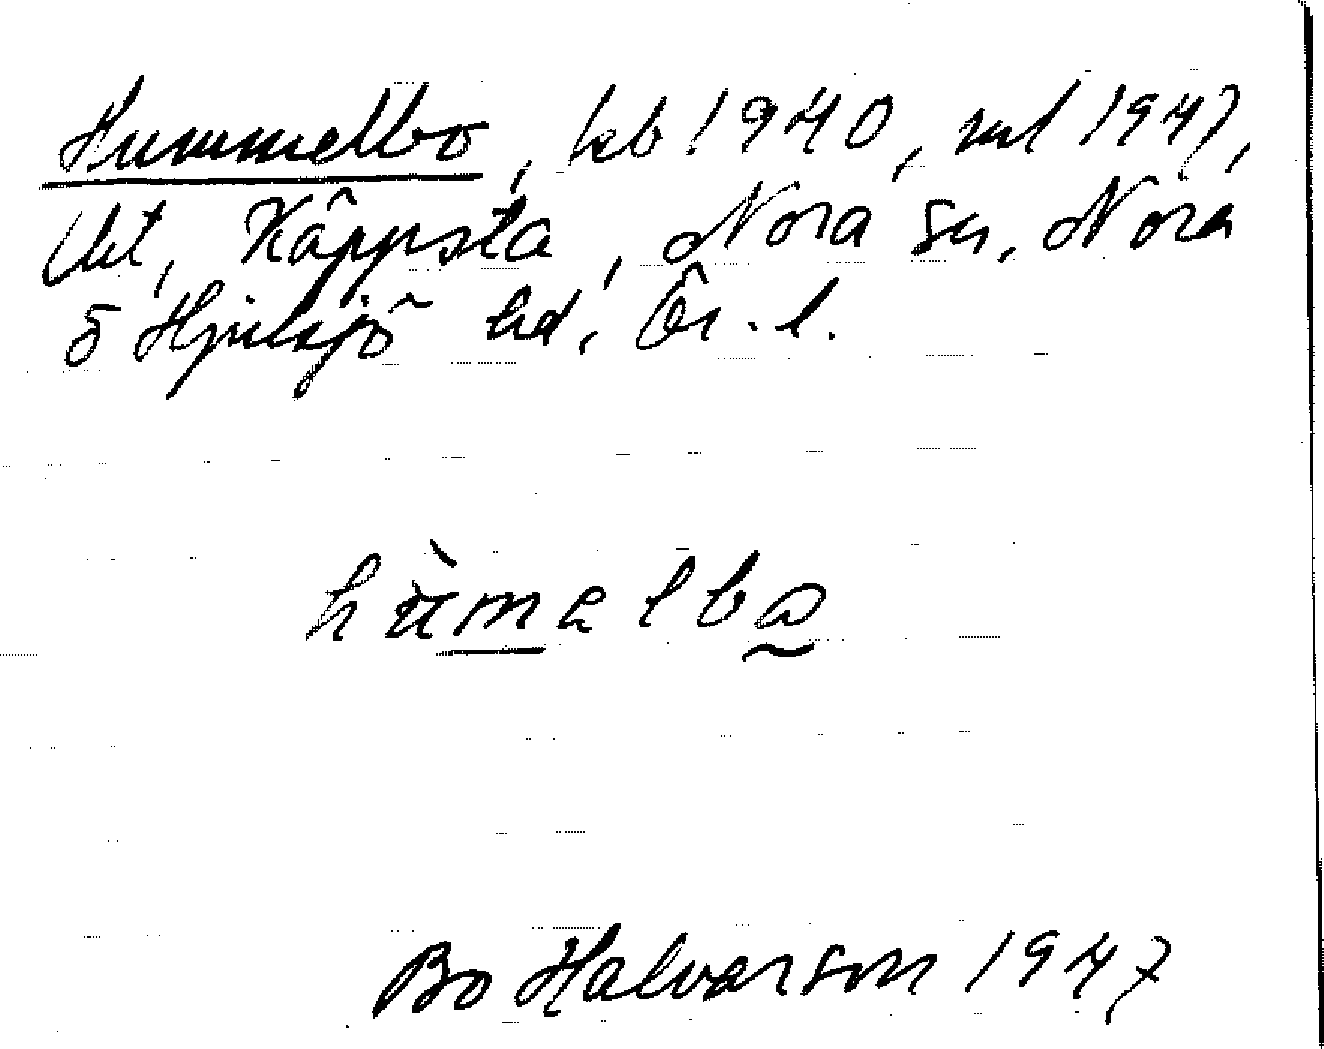 Hummelbo, kb 1940, ml 1947,
Vret, Käppsta, Nora sn, Nora
o Hjulsjö hd, Ör. l.
hùmelbo
Bo Halvarson 1947